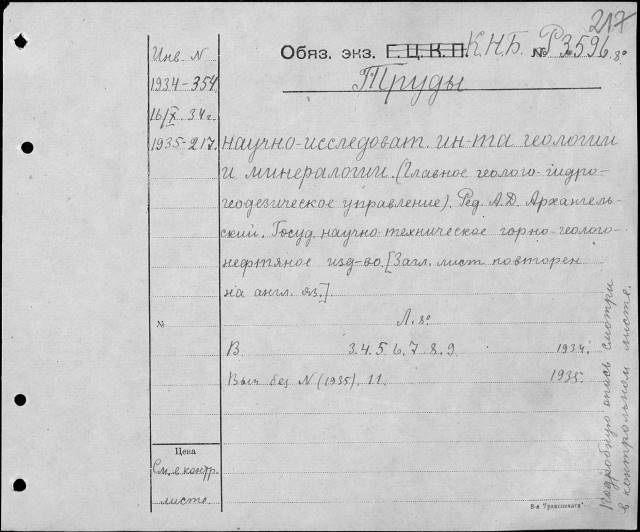 217
Обяз. экз. Г.Ц.К.П. К.Н.Б. № Р3596 8°
Труды
Инв. N
1934-354
16/X 34 г.
1935-217.
научно-исследоват. ин-та геологии
и минералогии. (Главное геолого-гидро-
геодезическое управление). Ред. А.Д. Архангель-
ский. Госуд. научно-техническое горно-геолого-
нефтяное изд-во. [Загл. лист повторен
на англ. яз.]
№
Л. 8°
В 3. 4. 5 6. 7 8. 9 1934.
Вып без N (1935). 11. 1935.
Цена
См. в контр.
листе.
Подробную опись смотри
в контрольном листе.
8-я "Транспечати"